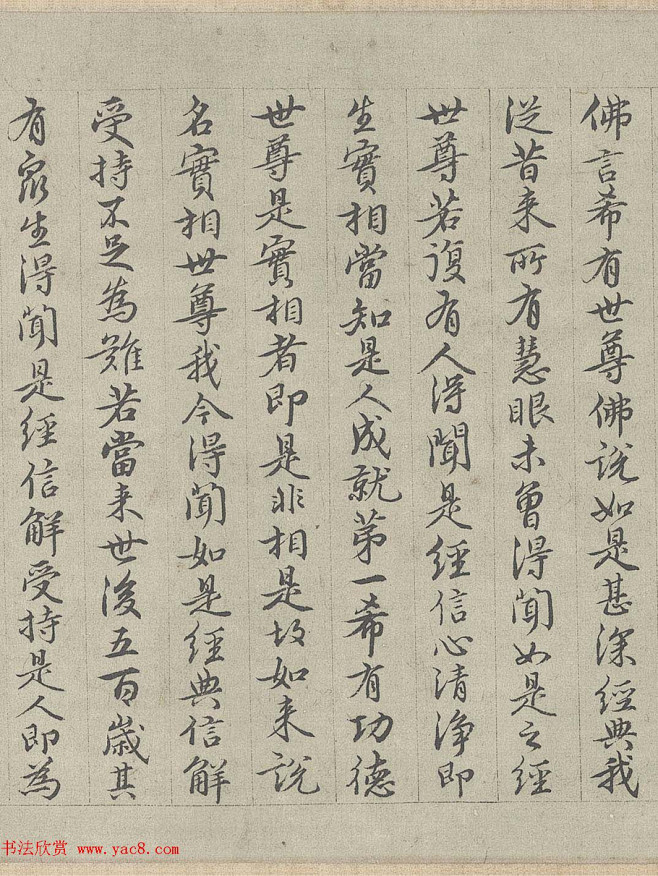 佛言希有世尊佛說如是甚深經典我
從昔来所有慧眼未曾得聞如是之經
世尊若復有人得聞是經信心清淨即
生實相當知是人成就第一希有功德
世尊是實相者即是非相是故如来說
名實相世尊我今得聞如是經典信解
受持不足為難若當来世後五百歲其
有眾生得聞是經信解受持是人即為
书法欣赏 www.yac8.com